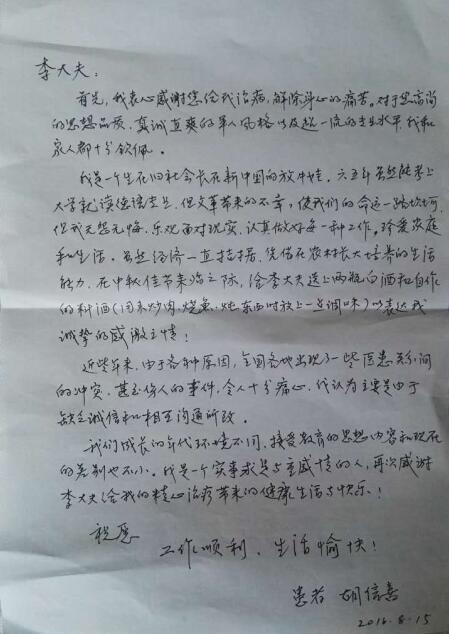 李大夫：
首先，我衷心感谢您给我治病，解除身心的痛苦。对于您高尚
的思想品质，真诚直爽的军人风格以及超一流的专业水平，我和
家人都十分钦佩。
我是一个生在旧社会长在新中国的放牛娃。六五年虽然考上
大学就读俄语专业，但文革带来的不幸，使我们的命运一路坎坷，
但我无怨无悔，乐观面对现实，认真做好每一种工作。珍爱家庭
和生活。虽然经济一直拮据，凭借在农村长大培养的生活
能力，在中秋佳节来临之际，给李大夫送上两瓶白酒和自作
的料酒(用来炒肉、烧鱼，炖东西时放上一点调味)以表达我
诚挚的感激之情！
近些年来，由于各种原因，全国各地出现了一些医患之间
的冲突，甚至伤人的事件，令人十分痛心，我认为主要是由于
缺乏诚信和相互沟通所致。
我们成长的年代环境不同，接受教育的思想内容和现在
的差别也不小。我是一个实事求是与重感情的人，再次感谢
李大夫给我的精心治疗带来的健康生活与快乐！
祝愿
工作顺利、生活愉快！
患者 胡信喜
2016.8.15